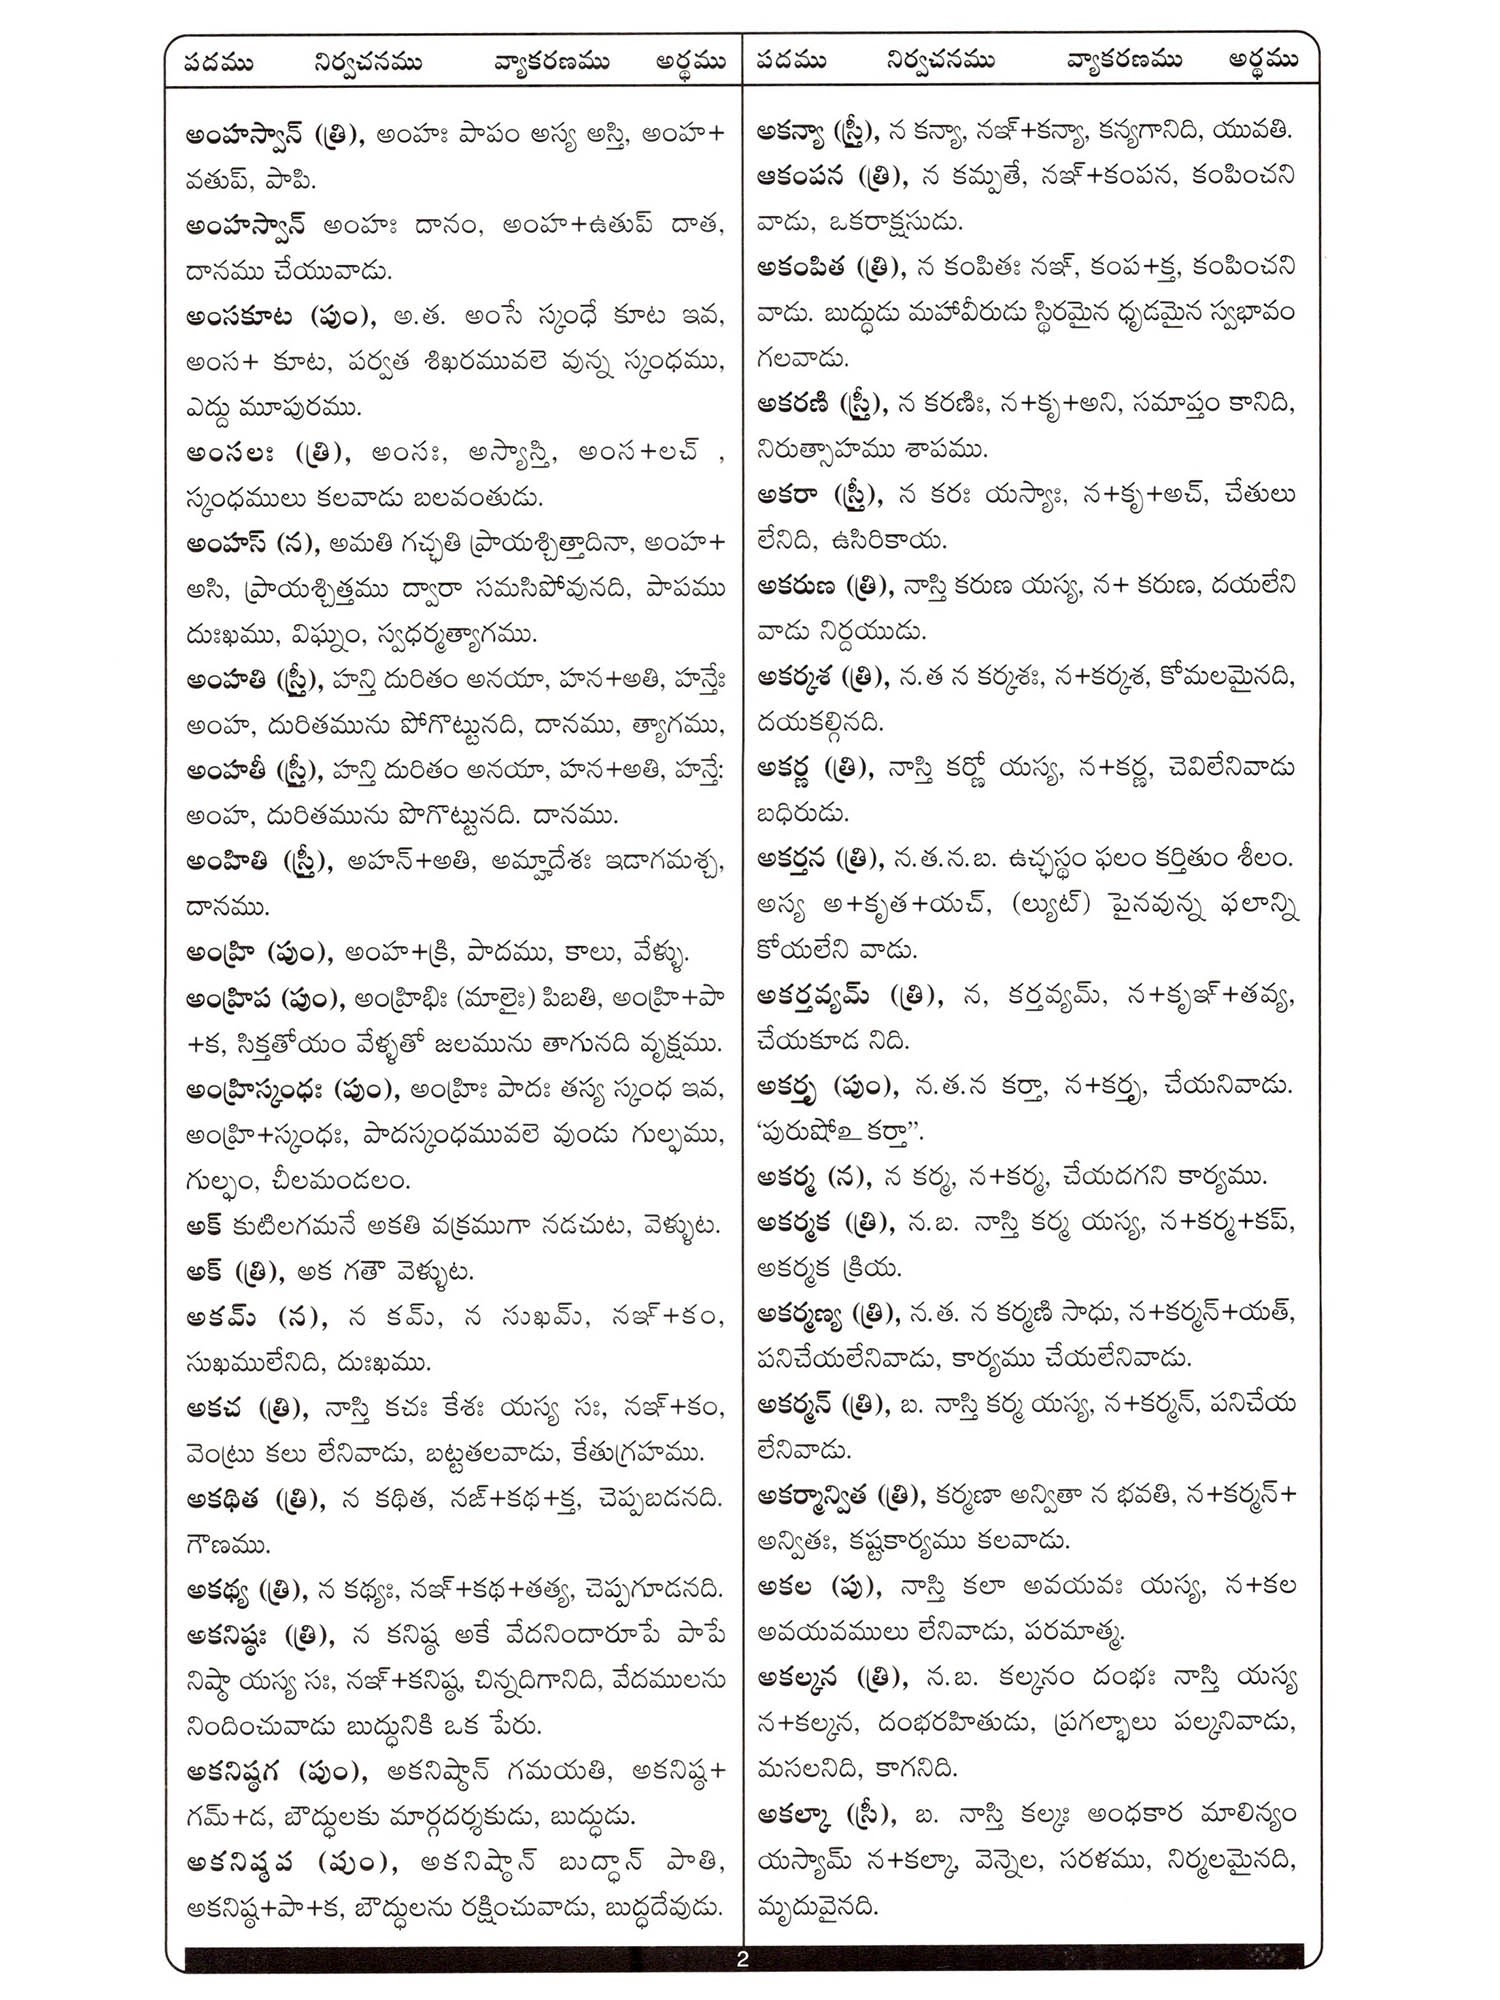 పదము నిర్వచనము వ్యాకరణము అర్థము
అంహస్వాన్ (త్రి), అంహః పాపం అస్య అస్తి, అంహ+
వతుప్, పాపి.
అంహస్వాన్ అంహః దానం, అంహ+ఉతుప్ దాత,
దానము చేయువాడు.
అంసకూట (పుం), అ.త. అంసే స్కంధే కూట ఇవ,
అంస+ కూట, పర్వత శిఖరమువలె వున్న స్కంధము,
ఎద్దు మూపురము.
అంసలః (త్రి), అంసః, అస్యాస్తి, అంస+లచ్ ,
స్కంధములు కలవాడు బలవంతుడు.
అంహస్ (న), అమతి గచ్ఛతి ప్రాయశ్చిత్తాదినా, అంహ+
అసి, ప్రాయశ్చిత్తము ద్వారా సమసిపోవునది, పాపము
దుఃఖము, విఘ్నం, స్వధర్మత్యాగము.
అంహతి (స్త్రీ), హన్తి దురితం అనయా, హన+అతి, హన్తేః
అంహ, దురితమును పోగొట్టునది, దానము, త్యాగము,
అంహతీ (స్త్రీ), హన్తి దురితం అనయా, హన+అతి, హన్తే:
అంహ, దురితమును పొగొట్టునది. దానము.
అంహితి (స్త్రీ), అహన్+అతి, అమ్హాదేశః ఇడాగమశ్చ,
దానము.
అంహ్రి (పుం), అంహ+క్రి, పాదము, కాలు, వేళ్ళు.
అంహ్రిప (పుం), అంహ్రిభిః (మాలైః) పిబతి, అంహ్రి+పా
+క, సిక్తతోయం వేళ్ళతో జలమును తాగునది వృక్షము.
అంహ్రిస్కంధః (పుం), అంహ్రిః పాదః తస్య స్కంధ ఇవ,
అంహ్రి+స్కంధః, పాదస్కంధమువలె వుండు గుల్ఫము,
గుల్ఫం, చీలమండలం.
అక్ కుటిలగమనే అకతి వక్రముగా నడచుట, వెళ్ళుట.
అక్ (త్రి), అక గతౌ వెళ్ళుట.
అకమ్ (న), న కమ్, న సుఖమ్, నఞ్+కం,
సుఖములేనిది, దుఃఖము.
అకచ (త్రి), నాస్తి కచః కేశః యస్య సః, నఞ్+కం,
వెంట్రు కలు లేనివాడు, బట్టతలవాడు, కేతుగ్రహము.
అకథిత (త్రి), న కథిత, నఙ్+కథ+క్త, చెప్పబడనది.
గౌణము.
అకథ్య (త్రి), న కథ్యః, నఞ్+కథ+తత్య, చెప్పగూడనది.
అకనిష్ఠః (త్రి), న కనిష్ఠ అకే వేదనిందారూపే పాపే
నిష్ఠా యస్య సః, నఞ్+కనిష్ఠ, చిన్నదిగానిది, వేదములను
నిందించువాడు బుద్ధునికి ఒక పేరు.
అకనిష్ఠగ (పుం), అకనిష్ఠాన్ గమయతి, అకనిష్ఠ+
గమ్+డ, బౌద్ధులకు మార్గదర్శకుడు, బుద్ధుడు.
అకనిష్ఠవ (పుం), అకనిష్ఠాన్ బుద్ధాన్ పాతి,
అకనిష్ఠ+పా+క, బౌద్ధులను రక్షించువాడు, బుద్ధదేవుడు.
పదము నిర్వచనము వ్యాకరణము అర్థము
అకన్యా (స్త్రీ), న కన్యా, నఞ్+కన్యా, కన్యగానిది, యువతి.
ఆకంపన (త్రి), న కమ్పతే, నఞ్+కంపన, కంపించని
వాడు, ఒకరాక్షసుడు.
అకంపిత (త్రి), న కంపితః నఞ్, కంప+క్త, కంపించని
వాడు. బుద్ధుడు మహావీరుడు స్థిరమైన ధృడమైన స్వభావం
గలవాడు.
అకరణి (స్త్రీ), న కరణిః, న+కృ+అని, సమాప్తం కానిది,
నిరుత్సాహము శాపము.
అకరా (స్త్రీ), న కరః యస్యాః, న+కృ+అచ్, చేతులు
లేనిది, ఉసిరికాయ.
అకరుణ (త్రి), నాస్తి కరుణ యస్య, న+ కరుణ, దయలేని
వాడు నిర్దయుడు.
అకర్కశ (త్రి), న.త న కర్కశః, న+కర్కశ, కోమలమైనది,
దయకల్గినది.
అకర్ణ (త్రి), నాస్తి కర్ణో యస్య, న+కర్ణ, చెవిలేనివాడు
బధిరుడు.
అకర్తన (త్రి), న.త.న.బ. ఉచ్ఛస్థం ఫలం కర్తితుం శీలం.
అస్య అ+కృత+యచ్, (ల్యుట్) పైనవున్న ఫలాన్ని
కోయలేని వాడు.
అకర్తవ్యమ్ (త్రి), న, కర్తవ్యమ్, న+కృఞ్+తవ్య,
చేయకూడ నిది.
అకర్తృ (పుం), న.త.న కర్తా, న+కర్తృ, చేయనివాడు.
‘పురుషోఽ కర్తా”.
అకర్మ (న), న కర్మ, న+కర్మ, చేయదగని కార్యము.
అకర్మక (త్రి), న.బ. నాస్తి కర్మ యస్య, న+కర్మ+కప్,
అకర్మక క్రియ.
అకర్మణ్య (త్రి), న.త. న కర్మణి సాధు, న+కర్మన్+యత్,
పనిచేయలేనివాడు, కార్యము చేయలేనివాడు.
అకర్మన్ (త్రి), బ. నాస్తి కర్మ యస్య, న+కర్మన్, పనిచేయ
లేనివాడు.
అకర్మాన్విత (త్రి), కర్మణా అన్వితా న భవతి, న+కర్మన్+
అన్వితః, కష్టకార్యము కలవాడు.
అకల (పు), నాస్తి కలా అవయవః యస్య, న+కల
అవయవములు లేనివాడు, పరమాత్మ.
అకల్కన (త్రి), న.బ. కల్కనం దంభః నాస్తి యస్య
న+కల్కన, దంభరహితుడు, ప్రగల్భాలు పల్కనివాడు,
మసలనిది, కాగనిది.
అకల్కా (స్రీ), బ. నాస్తి కల్కః అంధకార మాలిన్యం
యస్యామ్ న+కల్కా, వెన్నెల, సరళము, నిర్మలమైనది,
మృదువైనది.
2